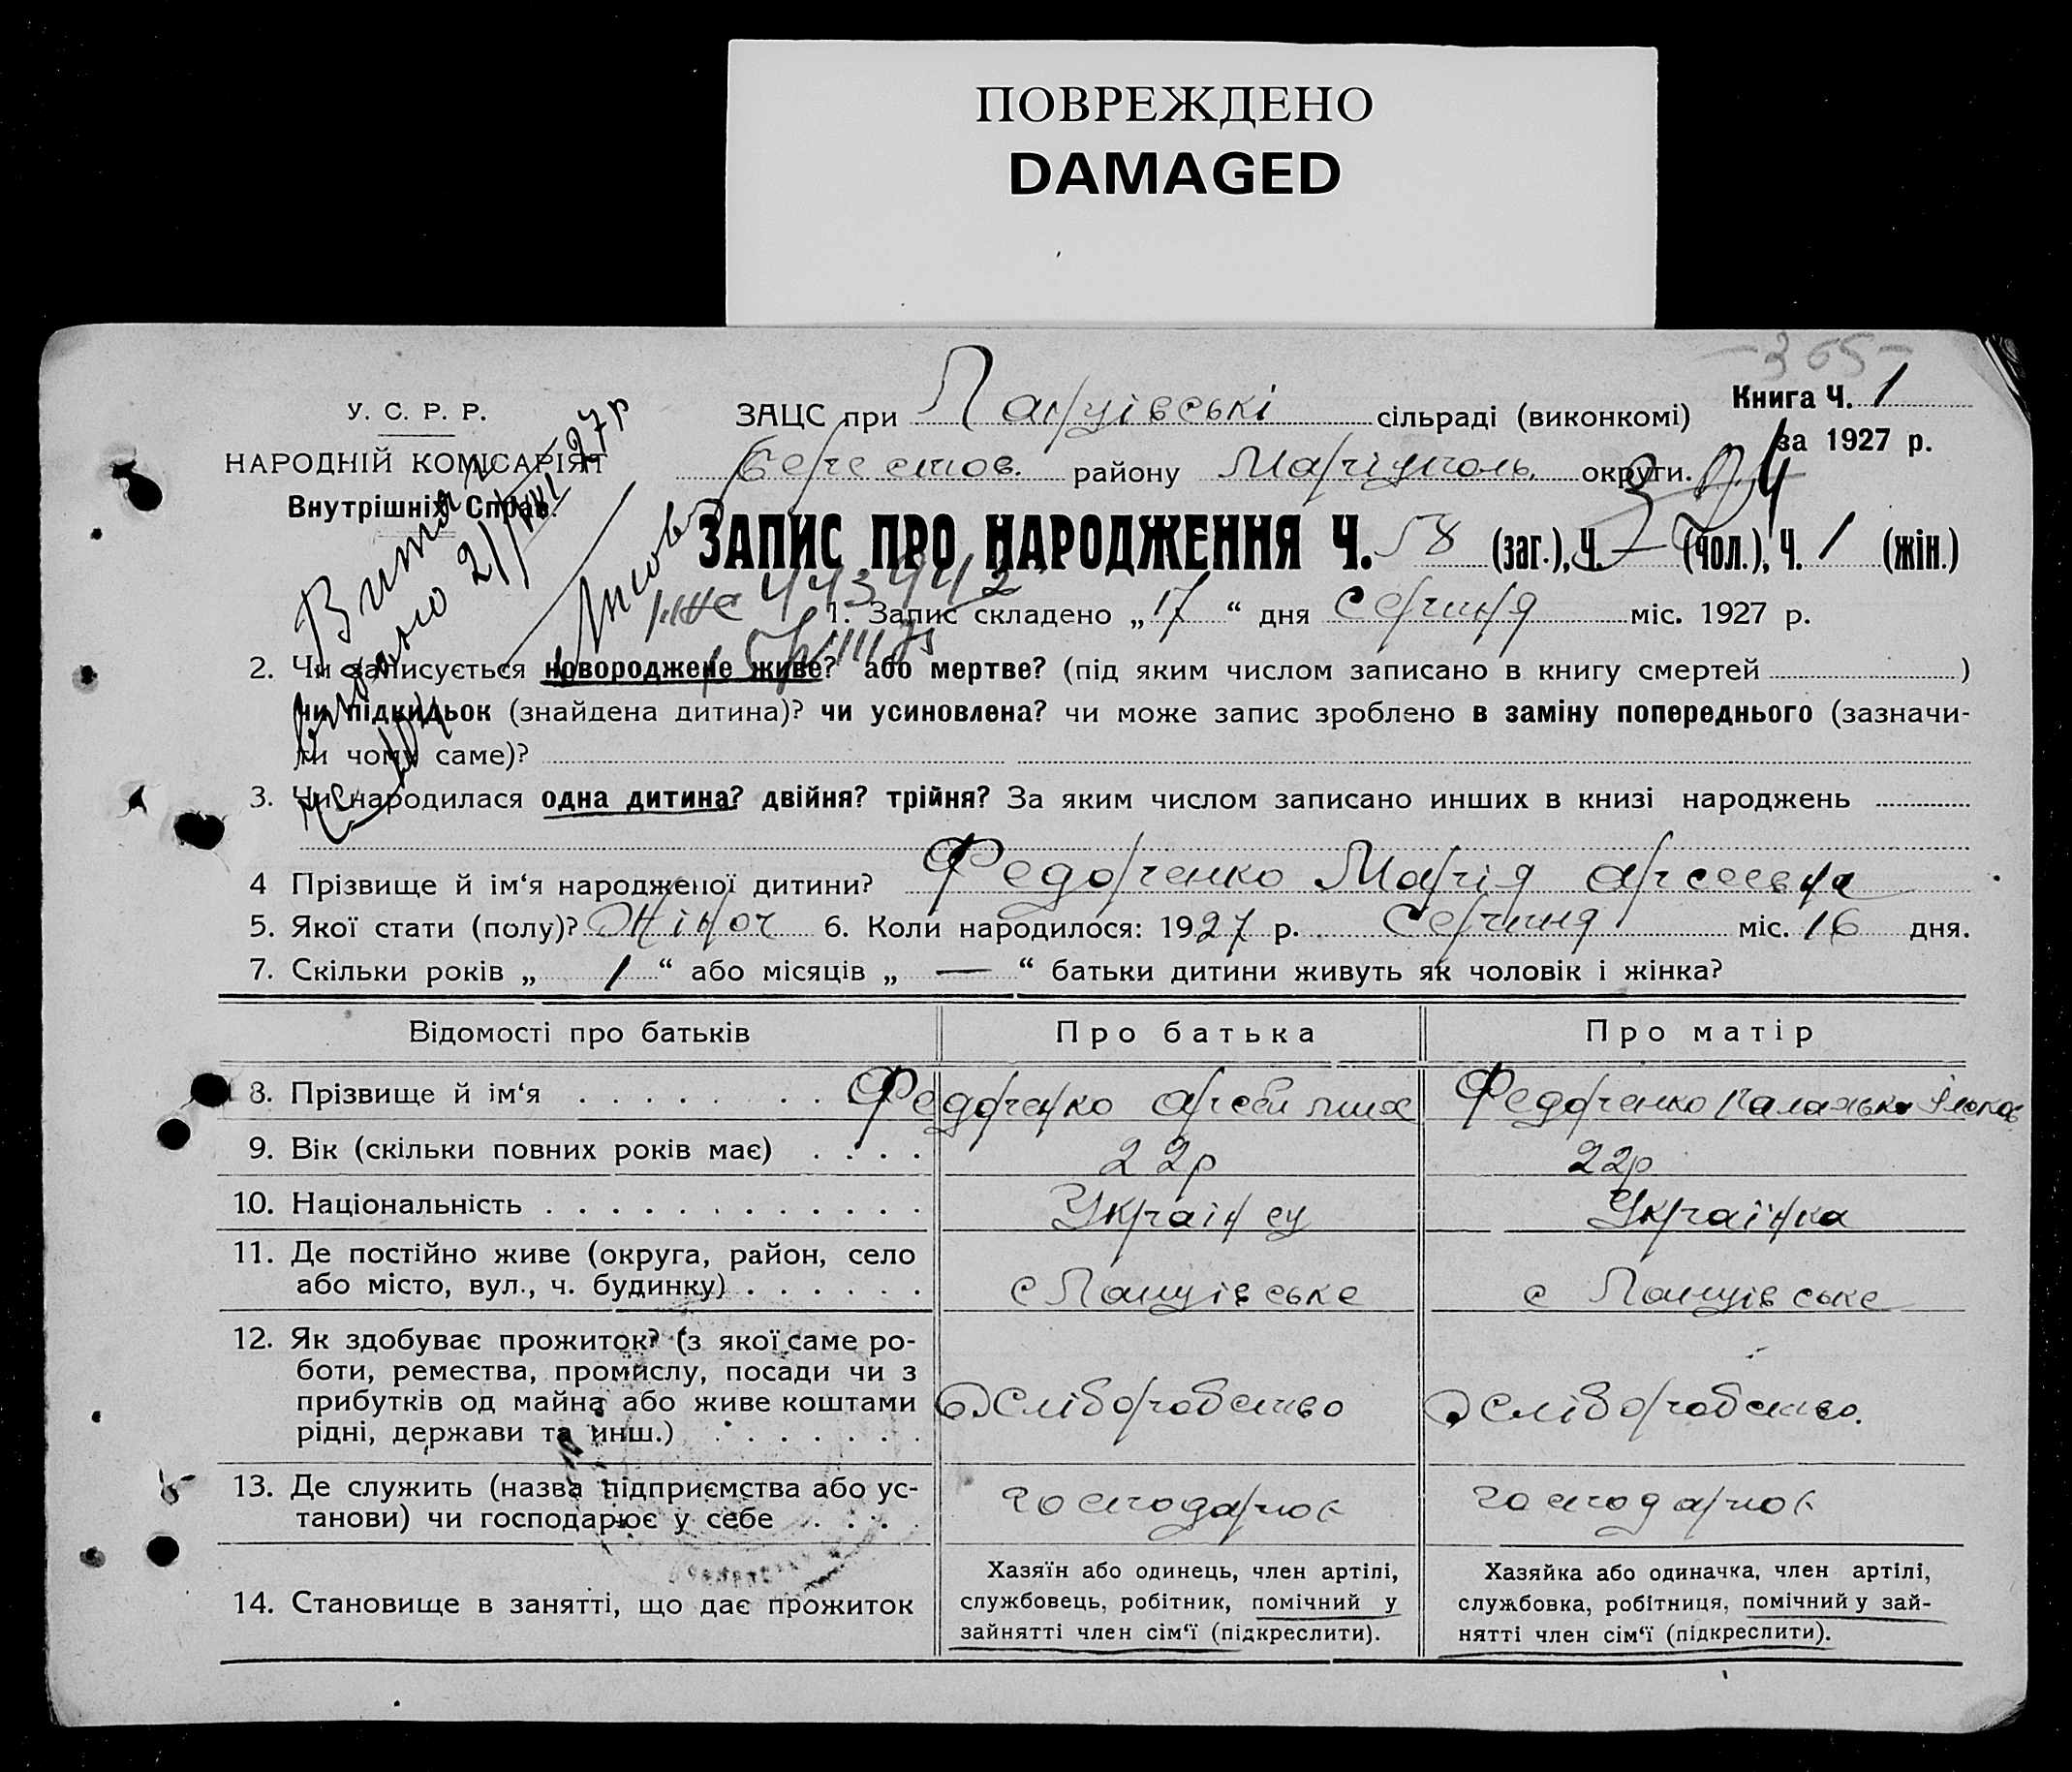 ПОВРЕЖДЕНО
DAMAGED
365
У. С. Р. Р.
НАРОДНІЙ КОМІСАРІЯТ
Внутрішніх Справ.
ЗАЦС при сільраді (виконкомі)
Книга Ч. 1
за 1927 р.
району Маріуполь. округи.
ЗАПИС ПРО НАРОДЖЕННЯ Ч. 58 (заг.), Ч. (чол.), Ч. 1 (жін.)
1. Запис складено „17“ дня Серпня міс. 1927 р.
2. Чи записується новороджене живе? або мертве? (під яким числом записано в книгу смертей )
чи підкидьок (знайдена дитина)? чи усиновлена? чи може запис зроблено в заміну попереднього (зазначи-
ти чому саме)?
3. Чи народилася одна дитина? двійня? трійня? За яким числом записано инших в книзі народжень
4 Прізвище й ім‘я народженої дитини? Федорченко Марія
5. Якої стати (полу)? Жіноч 6. Коли народилося: 1927 р. Серпня міс. 16 дня.
7. Скільки років „ 1 “ або місяців „ — “ батьки дитини живуть як чоловік і жінка?
Відомості про батьків
Про батька
Про матір
8. Прізвище й ім‘я Федорченко
Федорченко
9. Вік (скільки повних років має) 22р
22р
10. Національність
Українка
11. Де постійно живе (округа, район, село
або місто, вул., ч. будинку)
12. Як здобуває прожиток? (з якої саме ро-
боти, ремества, промислу, посади чи з
прибутків од майна або живе коштами
рідні, держави та инш.) Хліборобство
Хліборобство.
13. Де служить (назва підприємства або ус-
танови) чи господарює у себе господарює
господарює
14. Становище в занятті, що дає прожиток
Хазяїн або одинець, член артілі,
службовець, робітник, помічний у
зайнятті член сім‘ї (підкреслити).
Хазяйка або одиначка, член артілі,
службовка, робітниця, помічний у зай-
нятті член сім‘ї (підкреслити).